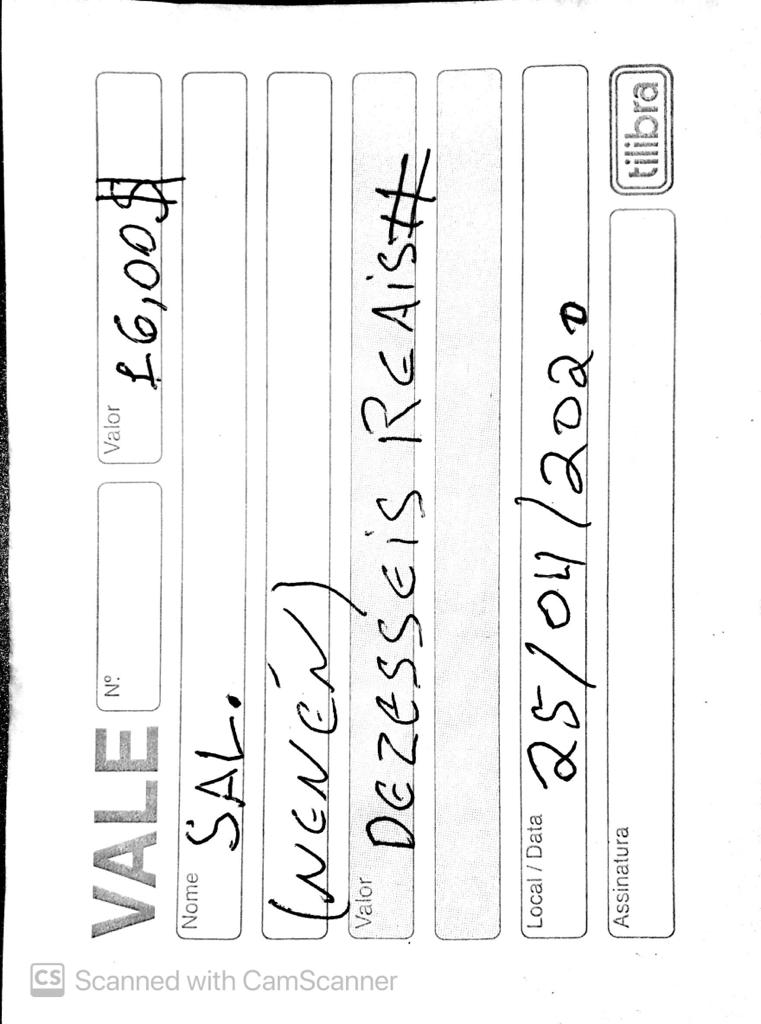 VALE
Nº
Valor 16,00$
Nome SAL.
(NENÉN)
Valor DEZESSEIS REAIS#
Local / Data 25/04/2020
Assinatura
tilibra
CS Scanned with CamScanner